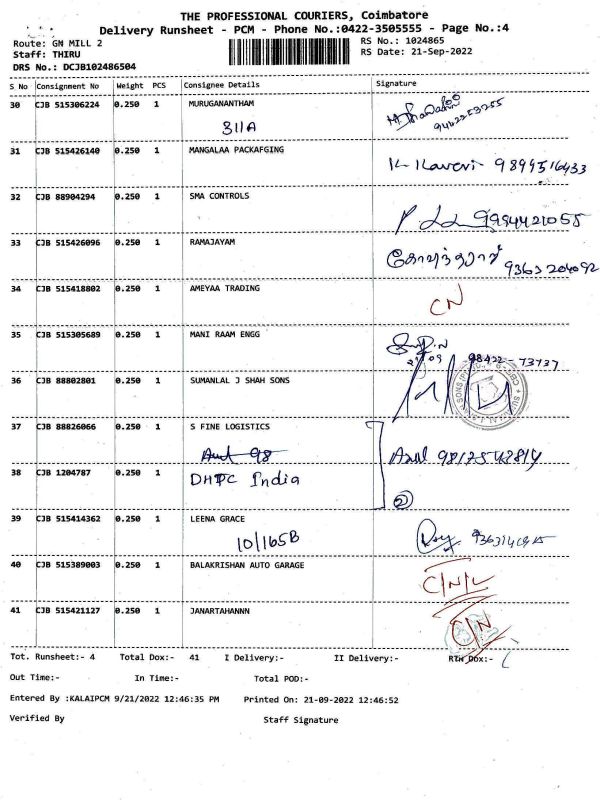 THE PROFESSIONAL COURIERS, Coimbatore
Delivery Runsheet - PCM - Phone No.:0422-3505555 - Page No.:4
Route: GN MILL 2
RS No.: 1024865
Staff: THIRU
RS Date: 21-Sep-2022
DRS No.: DCJB102486504
S No Consignment No Weight PCS Consignee Details Signature
30 CJB 515306224 0.250 1 MURUGANANTHAM
311A
31 CJB 515426140 0.250 1 MANGALAA PACKAFGING
K Kaveri 9899516433
32 CJB 88904294 0.250 1 SMA CONTROLS
9994421055
33 CJB 515426096 0.250 1 RAMAJAYAM
9363204092
34 CJB 515418802 0.250 1 AMEYAA TRADING
CN
35 CJB 515305689 0.250 1 MANI RAAM ENGG
98422-73737
36 CJB 88802801 0.250 1 SUMANLAL J SHAH SONS
37 CJB 88826066 0.250 1 S FINE LOGISTICS
38 CJB 1204787 0.250 1 India
2
39 CJB 515414362 0.250 1 LEENA GRACE
10/165B
40 CJB 515389003 0.250 1 BALAKRISHAN AUTO GARAGE
C/N/L
41 CJB 515421127 0.250 1 JANARTAHANNN
C/N
Tot. Runsheet:- 4 Total Dox:- 41 I Delivery:- II Delivery:- RTN Dox:-
Out Time:- In Time:- Total POD:-
Entered By :KALAIPCM 9/21/2022 12:46:35 PM Printed On: 21-09-2022 12:46:52
Verified By Staff Signature